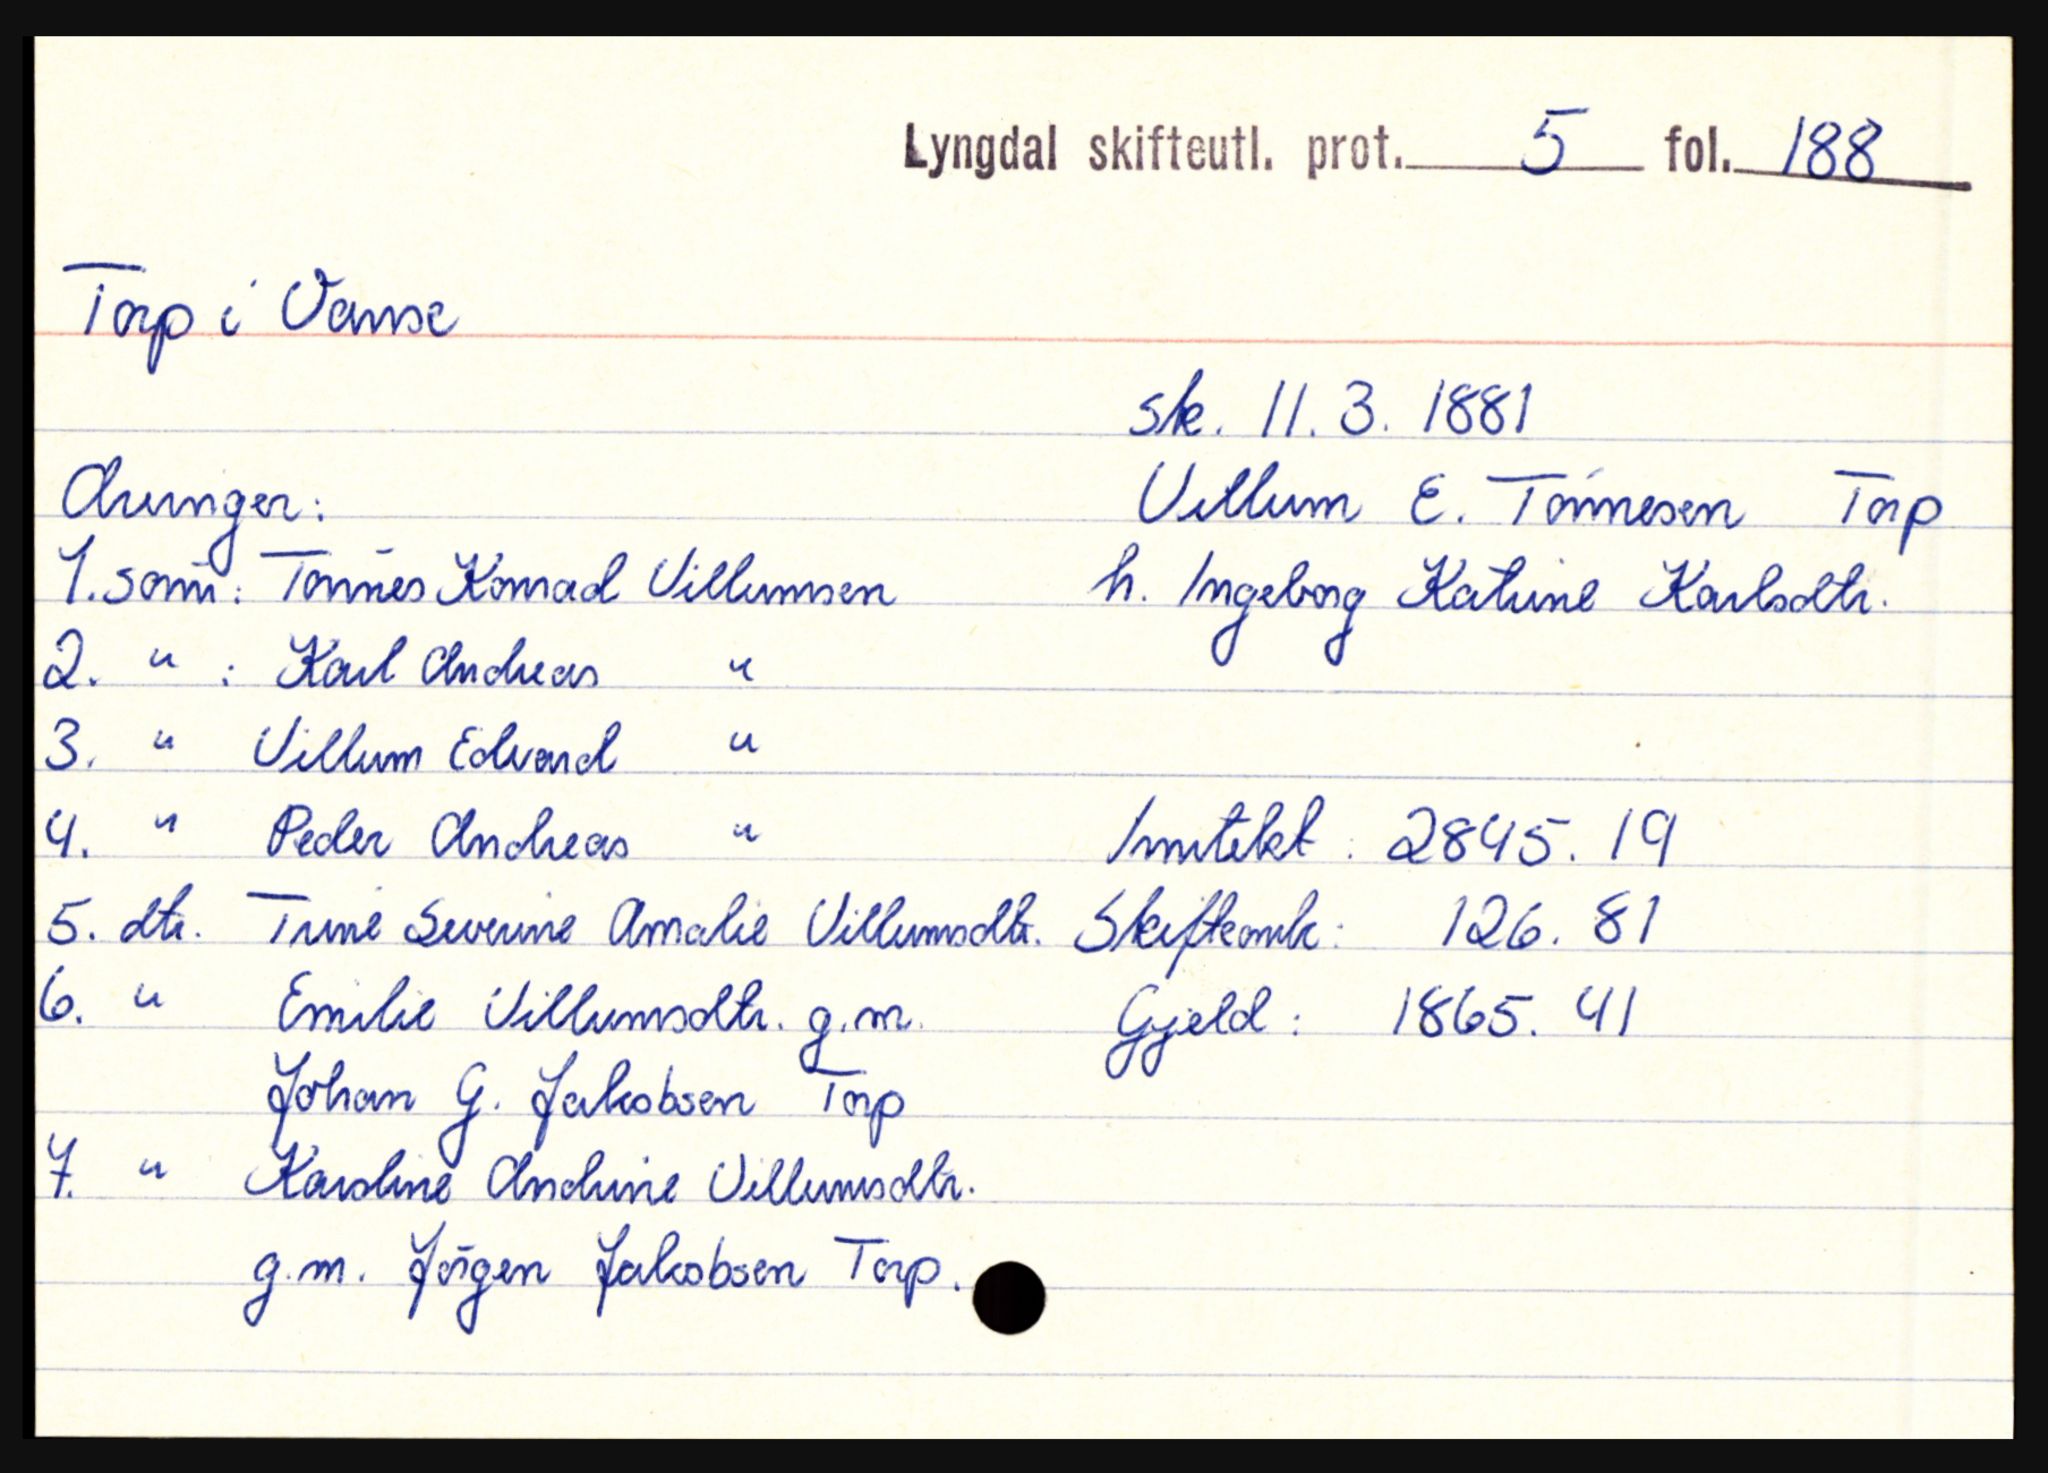 Lyngdal skifteutl. prot. 5 fol. 188
Torp i Vanse
sk. 11. 3. 1881
Villum E. Tönnesen Torp
h. Ingeborg Katrine Karlsdtr.
Arvinger:
1. sönn: Tönnes Konrad Villumsen
2. " : Karl Andreas "
3. " Villum Edvard "
4. " Peder Andreas "
5. dtr. Trine Severine Amalie Villumsdtr.
6. " Emilie Villumsdtr. g.m.
Johan G. Jakobsen Torp
7. " Karoline Andrine Villumsdtr.
g.m. Jörgen Jakobsen Torp.
Inntekt: 2845. 19
Skifteomk: 126. 81
Gjeld: 1865. 41